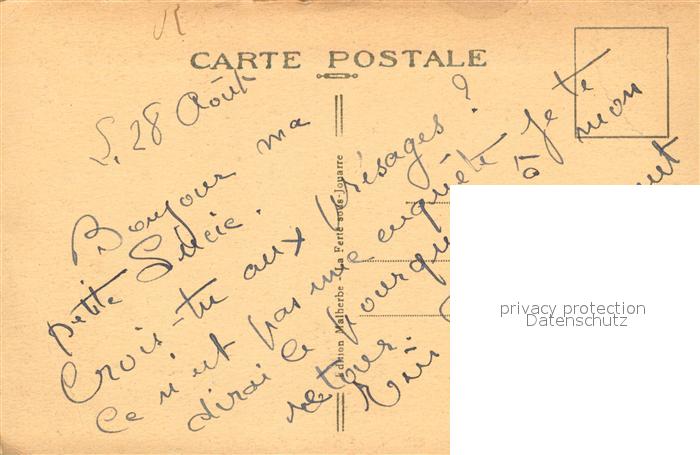 CARTE POSTALE
S. 28 Août
Bonjour ma
petite Lucie.
Crois-tu aux présages ?
Ce n'est pas une enquête je te
dirai le pourquoi à mon
retour.
Edition Malherbe La Ferté-sous-Jouarre
privacy protection
Datenschutz